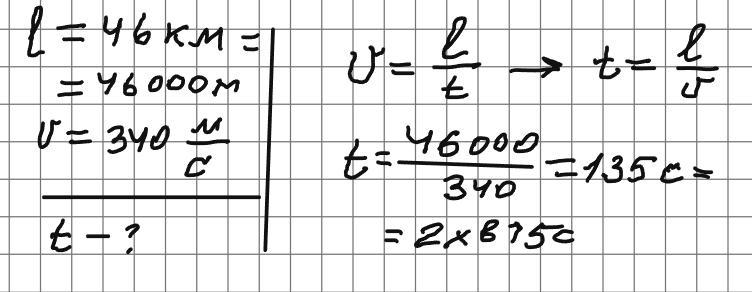 l = 46 км =
= 46000м
v = 340 м/с
t - ?
v = l/t → t = l/v
t = 46000/340 = 135 с =
= 2 хв 15с